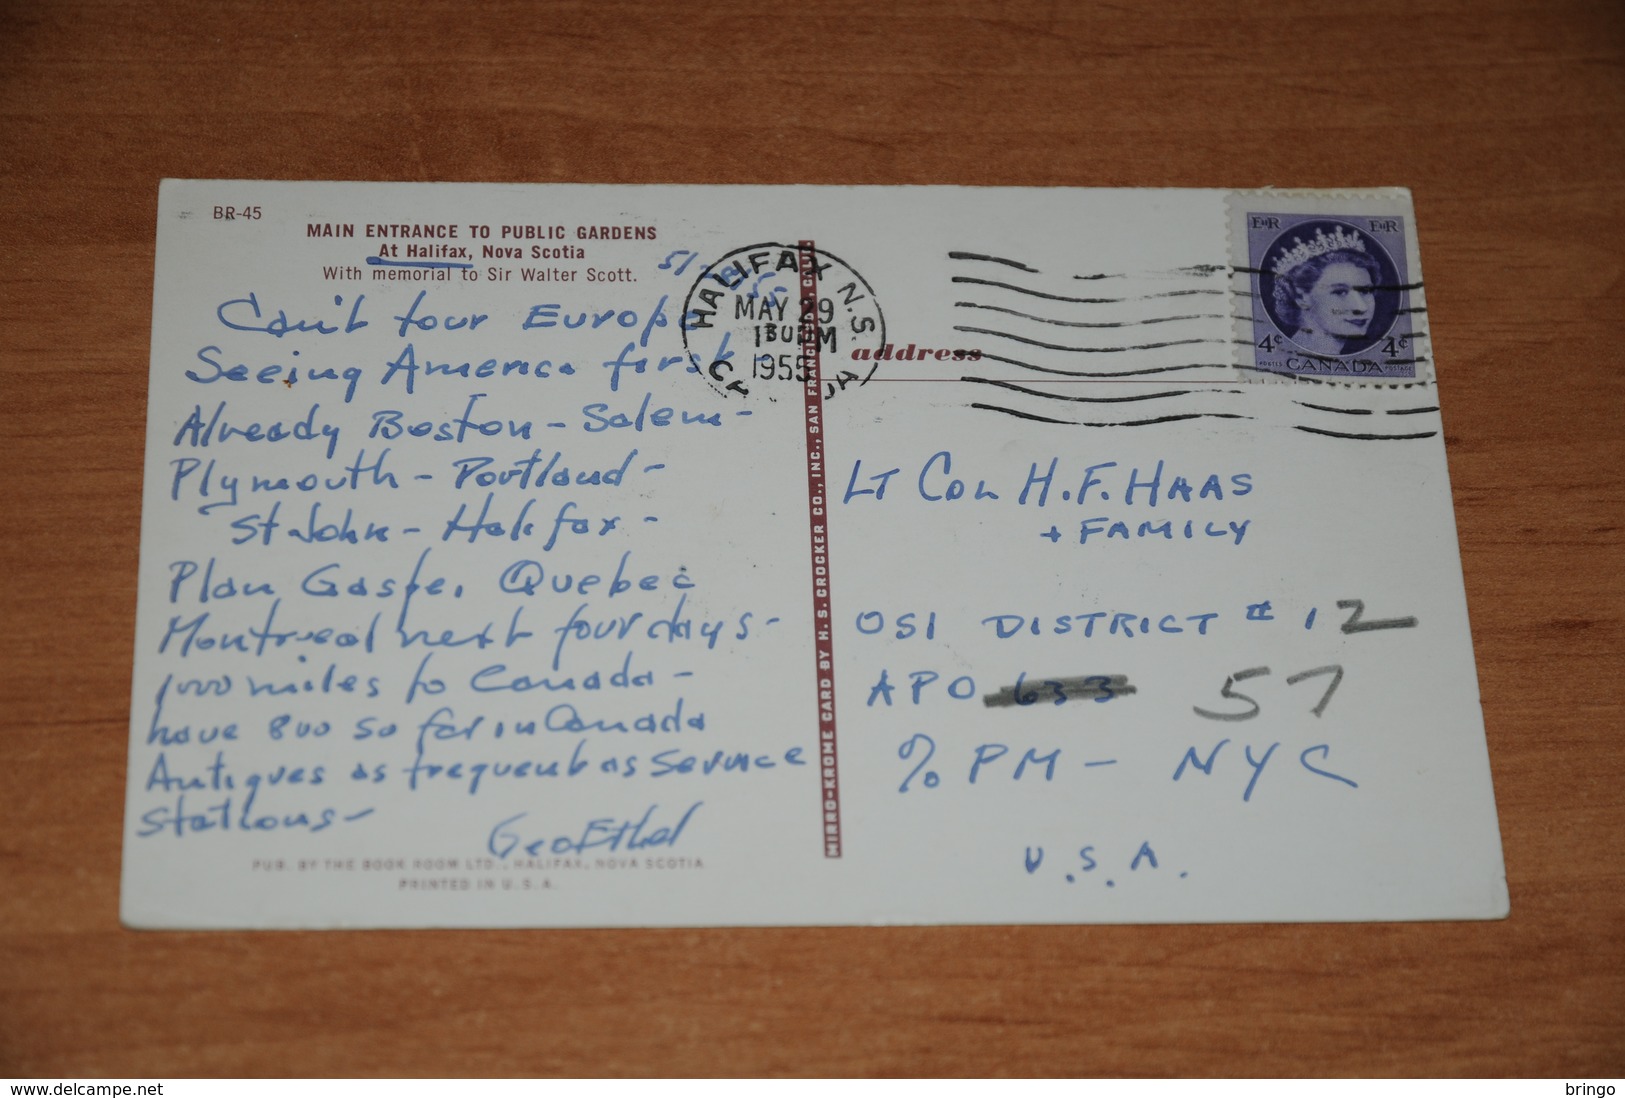 BR-45
MAIN ENTRANCE TO PUBLIC GARDENS
At Halifax, Nova Scotia
With memorial to Sir Walter Scott.
Can't tour Europe
Seeing America first -
Already Boston - Salem -
Plymouth - Portland -
St John - Halifax -
Plan Gaspe, Quebec
Montreal next four days -
1,000 miles to Canada -
have 800 so far in Canada
Antiques as frequent as Service
Stations -
Geo Ethel
PUB. BY THE BOOK ROOM LTD., HALIFAX, NOVA SCOTIA
PRINTED IN U.S.A.
MIRRO-KROME CARD BY H. S. CROCKER CO., INC., SAN FRANCISCO, CALIF.
HALIFAX N.S.
MAY 29
PM
1955
CANADA
address
E II R E II R
4¢ 4¢
POSTES CANADA POSTAGE
LT COL H.F. HAAS
+ FAMILY
OSI DISTRICT # 12
APO 633 57
% PM - NYC
U.S.A.
delcampe.net
bringo